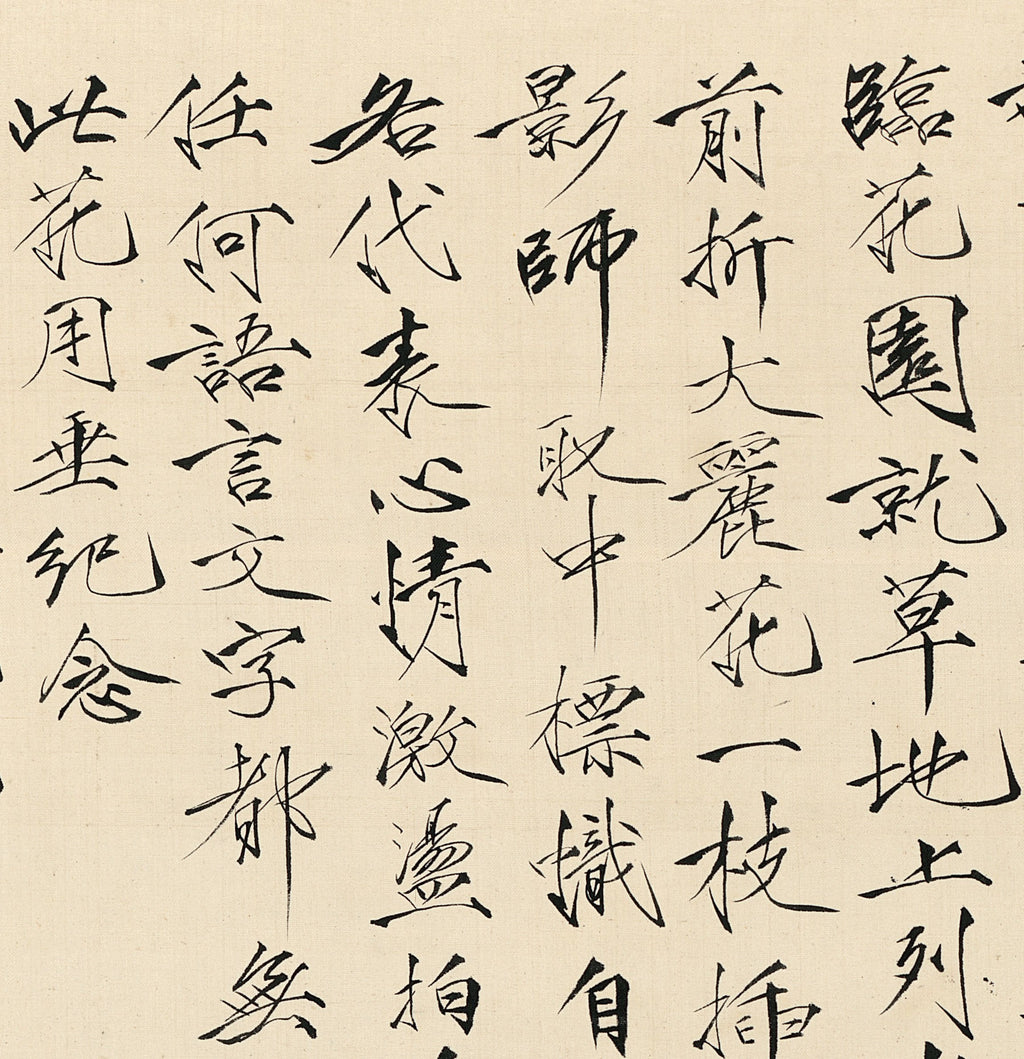 臨花園就草地上列
前折大麗花一枝插
影師取中標幟自
各代表心情激盪拍
任何語言文字都無
此花用垂紀念